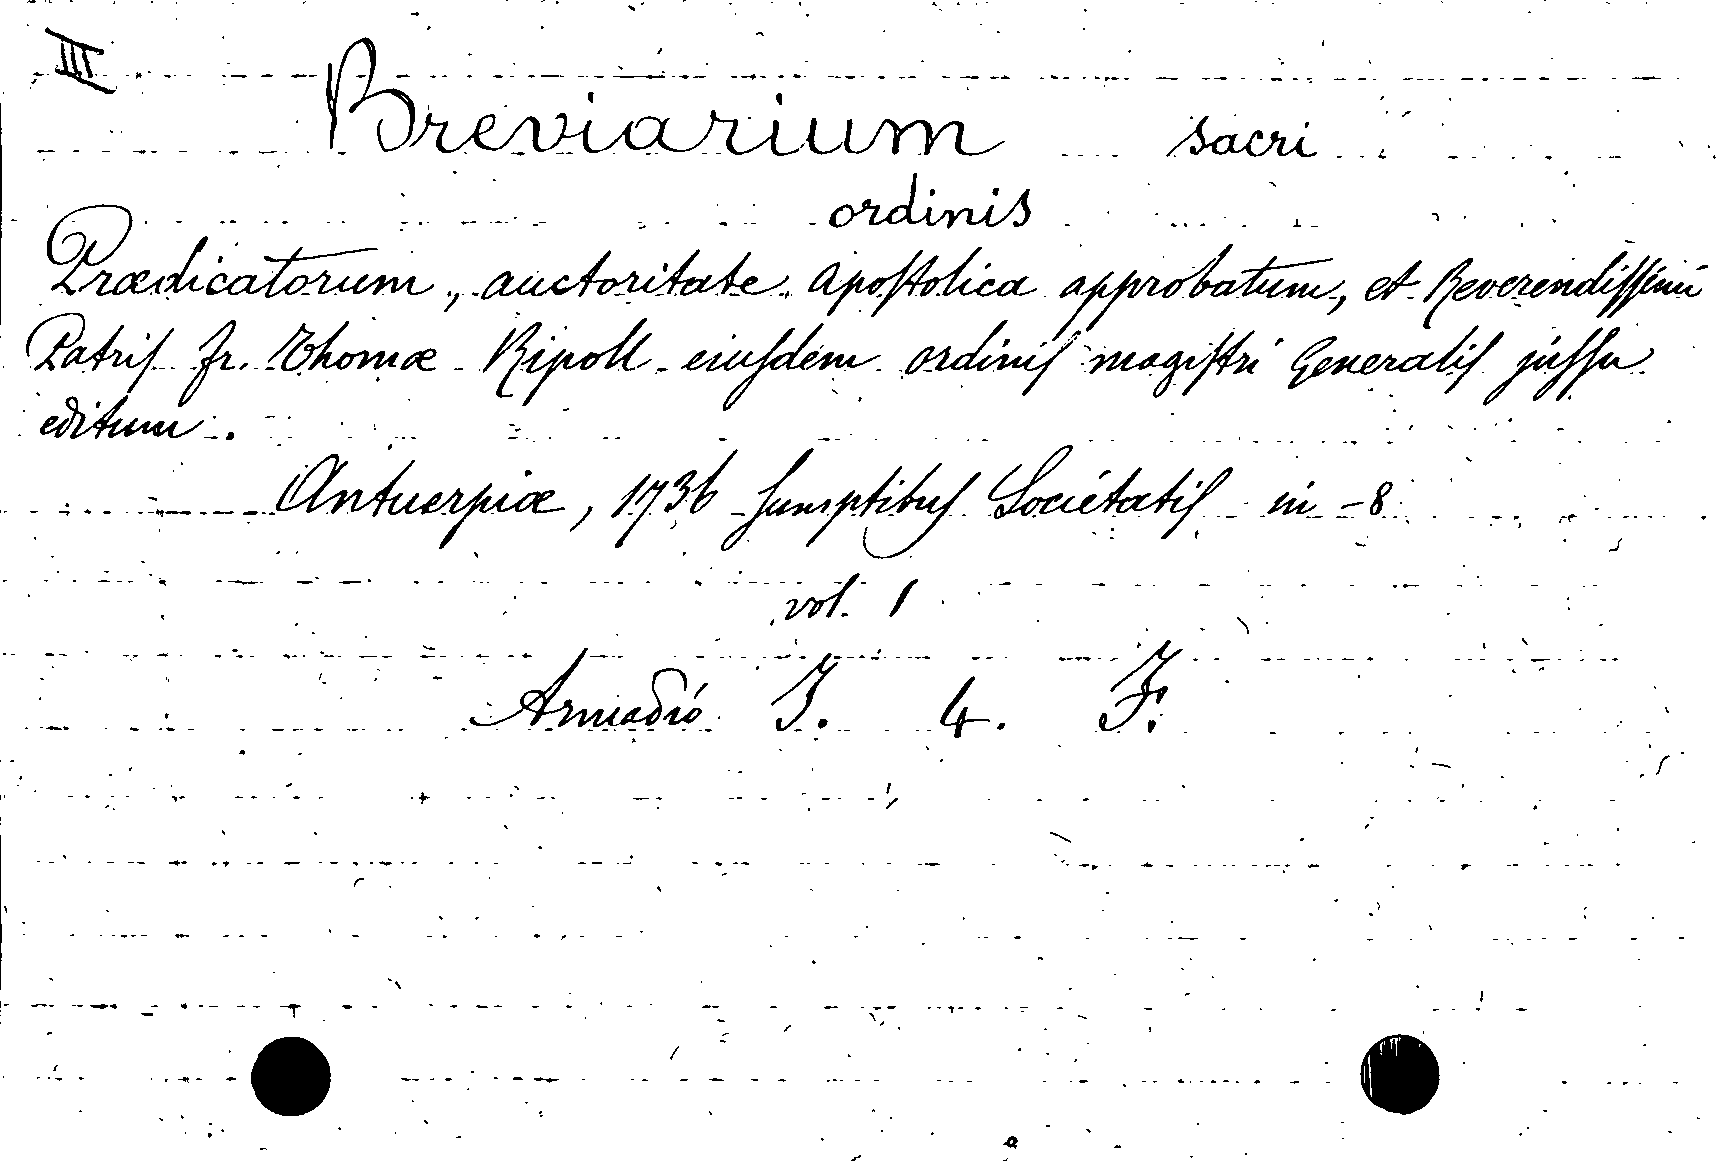 III
Breviarium sacri
ordinis
Prædicatorum, auctoritate Apostolica approbatum, et Reverendissimi
Patris fr. Thomæ Ripoll eiusdem ordinis magistri Generalis jussu
editum.
Antuerpiæ, 1736 sumptibus Societatis in-8
vol. 1
Armadio I. 4. F.